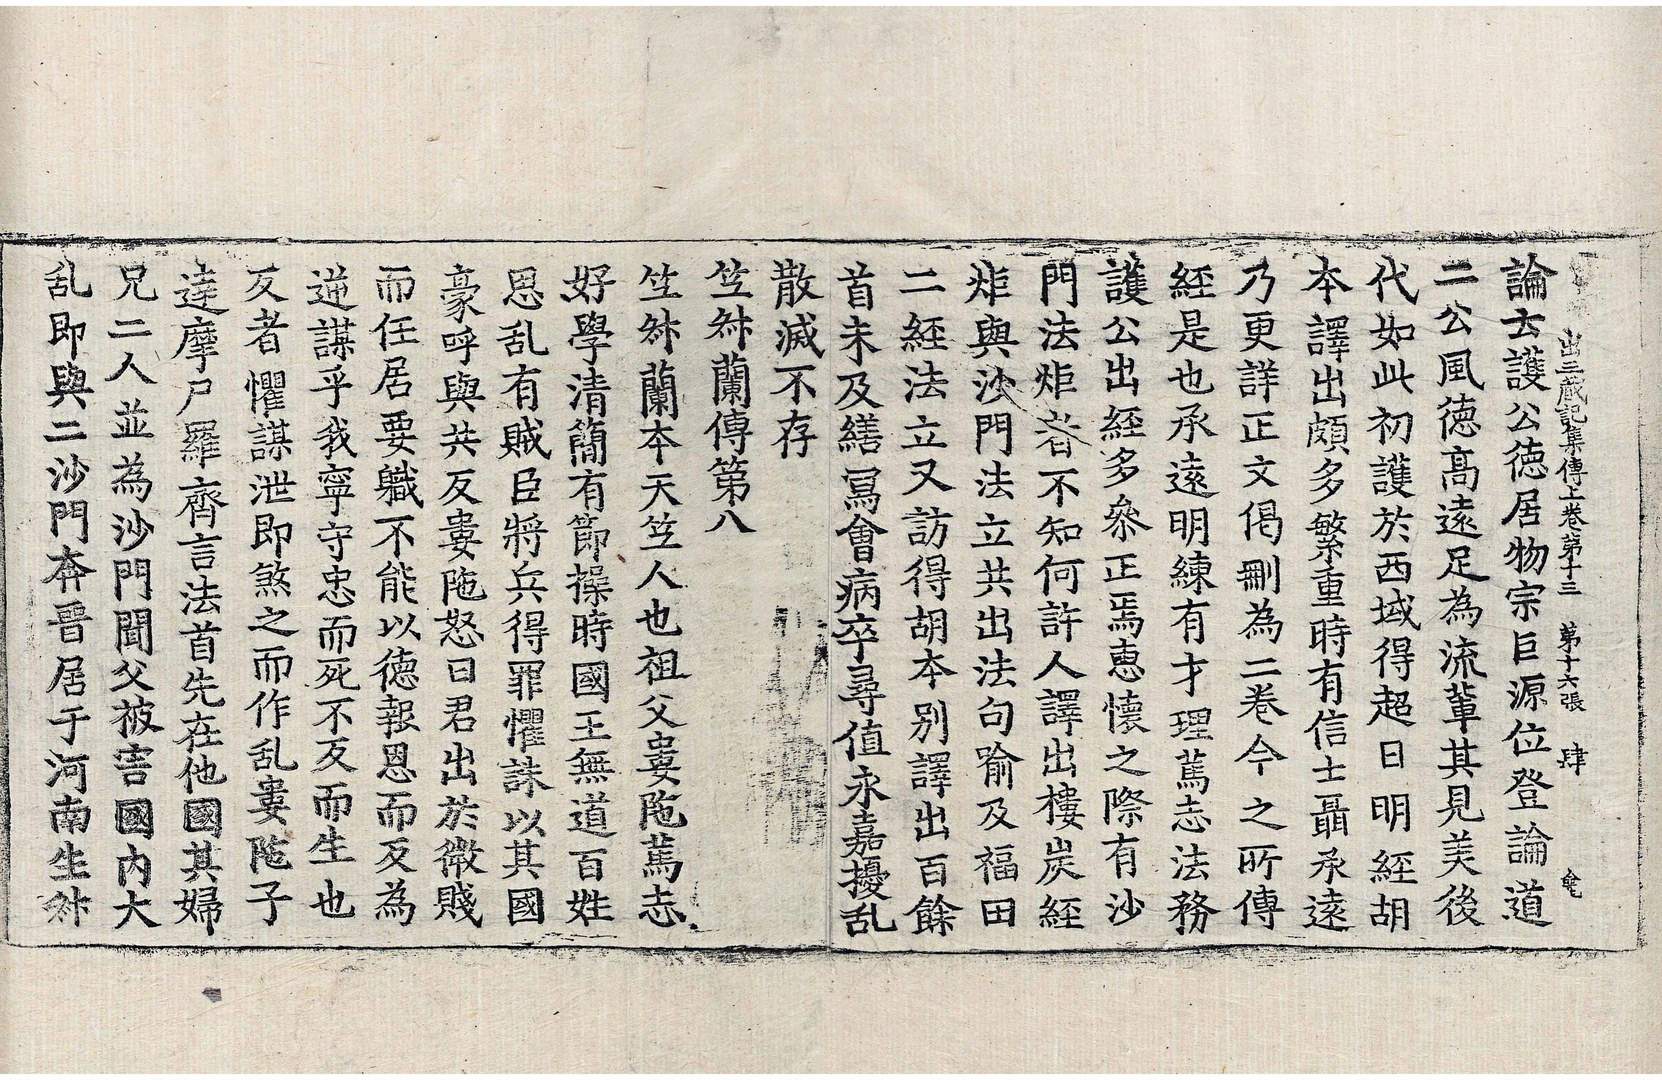 出三藏記集傳上卷第十三 第十六張 肆
論云護公德居物宗巨源位登論道
二公風德高遠足為流輩其見美後
代如此初護於西域得超日明經胡
本譯出頗多繁重時有信士聶承遠
乃更詳正文偈刪為二卷今之所傳
經是也承遠明練有才理篤志法務
護公出經多叅正焉惠懷之際有沙
門法炬者不知何許人譯出樓炭經
炬與沙門法立共出法句喻及福田
二經法立又訪得胡本別譯出百餘
首未及繕寫會病卒尋值永嘉擾乱
散滅不存
竺叔蘭傳第八
竺叔蘭本天竺人也祖父婁陁篤志
好學清簡有節操時國王無道百姓
思乱有賊臣將兵得罪懼誅以其國
豪呼與共反婁陁怒曰君出於微賤
而任居要職不能以德報恩而反為
逆謀乎我寧守忠而死不反而生也
反者懼謀泄即煞之而作乱婁陁子
達摩尸羅齊言法首先在他國其婦
兄二人並為沙門聞父被害國內大
乱即與二沙門奔晉居于河南生叔